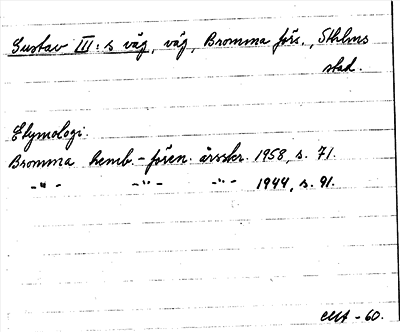 Gustav III:s väg, väg, Bromma förs., Sthlms
stad.
Etymologi.
Bromma hemb.-fören. årsskr. 1958, s. 71.
-"- -"- -"- 1944, s. 91.
-60.